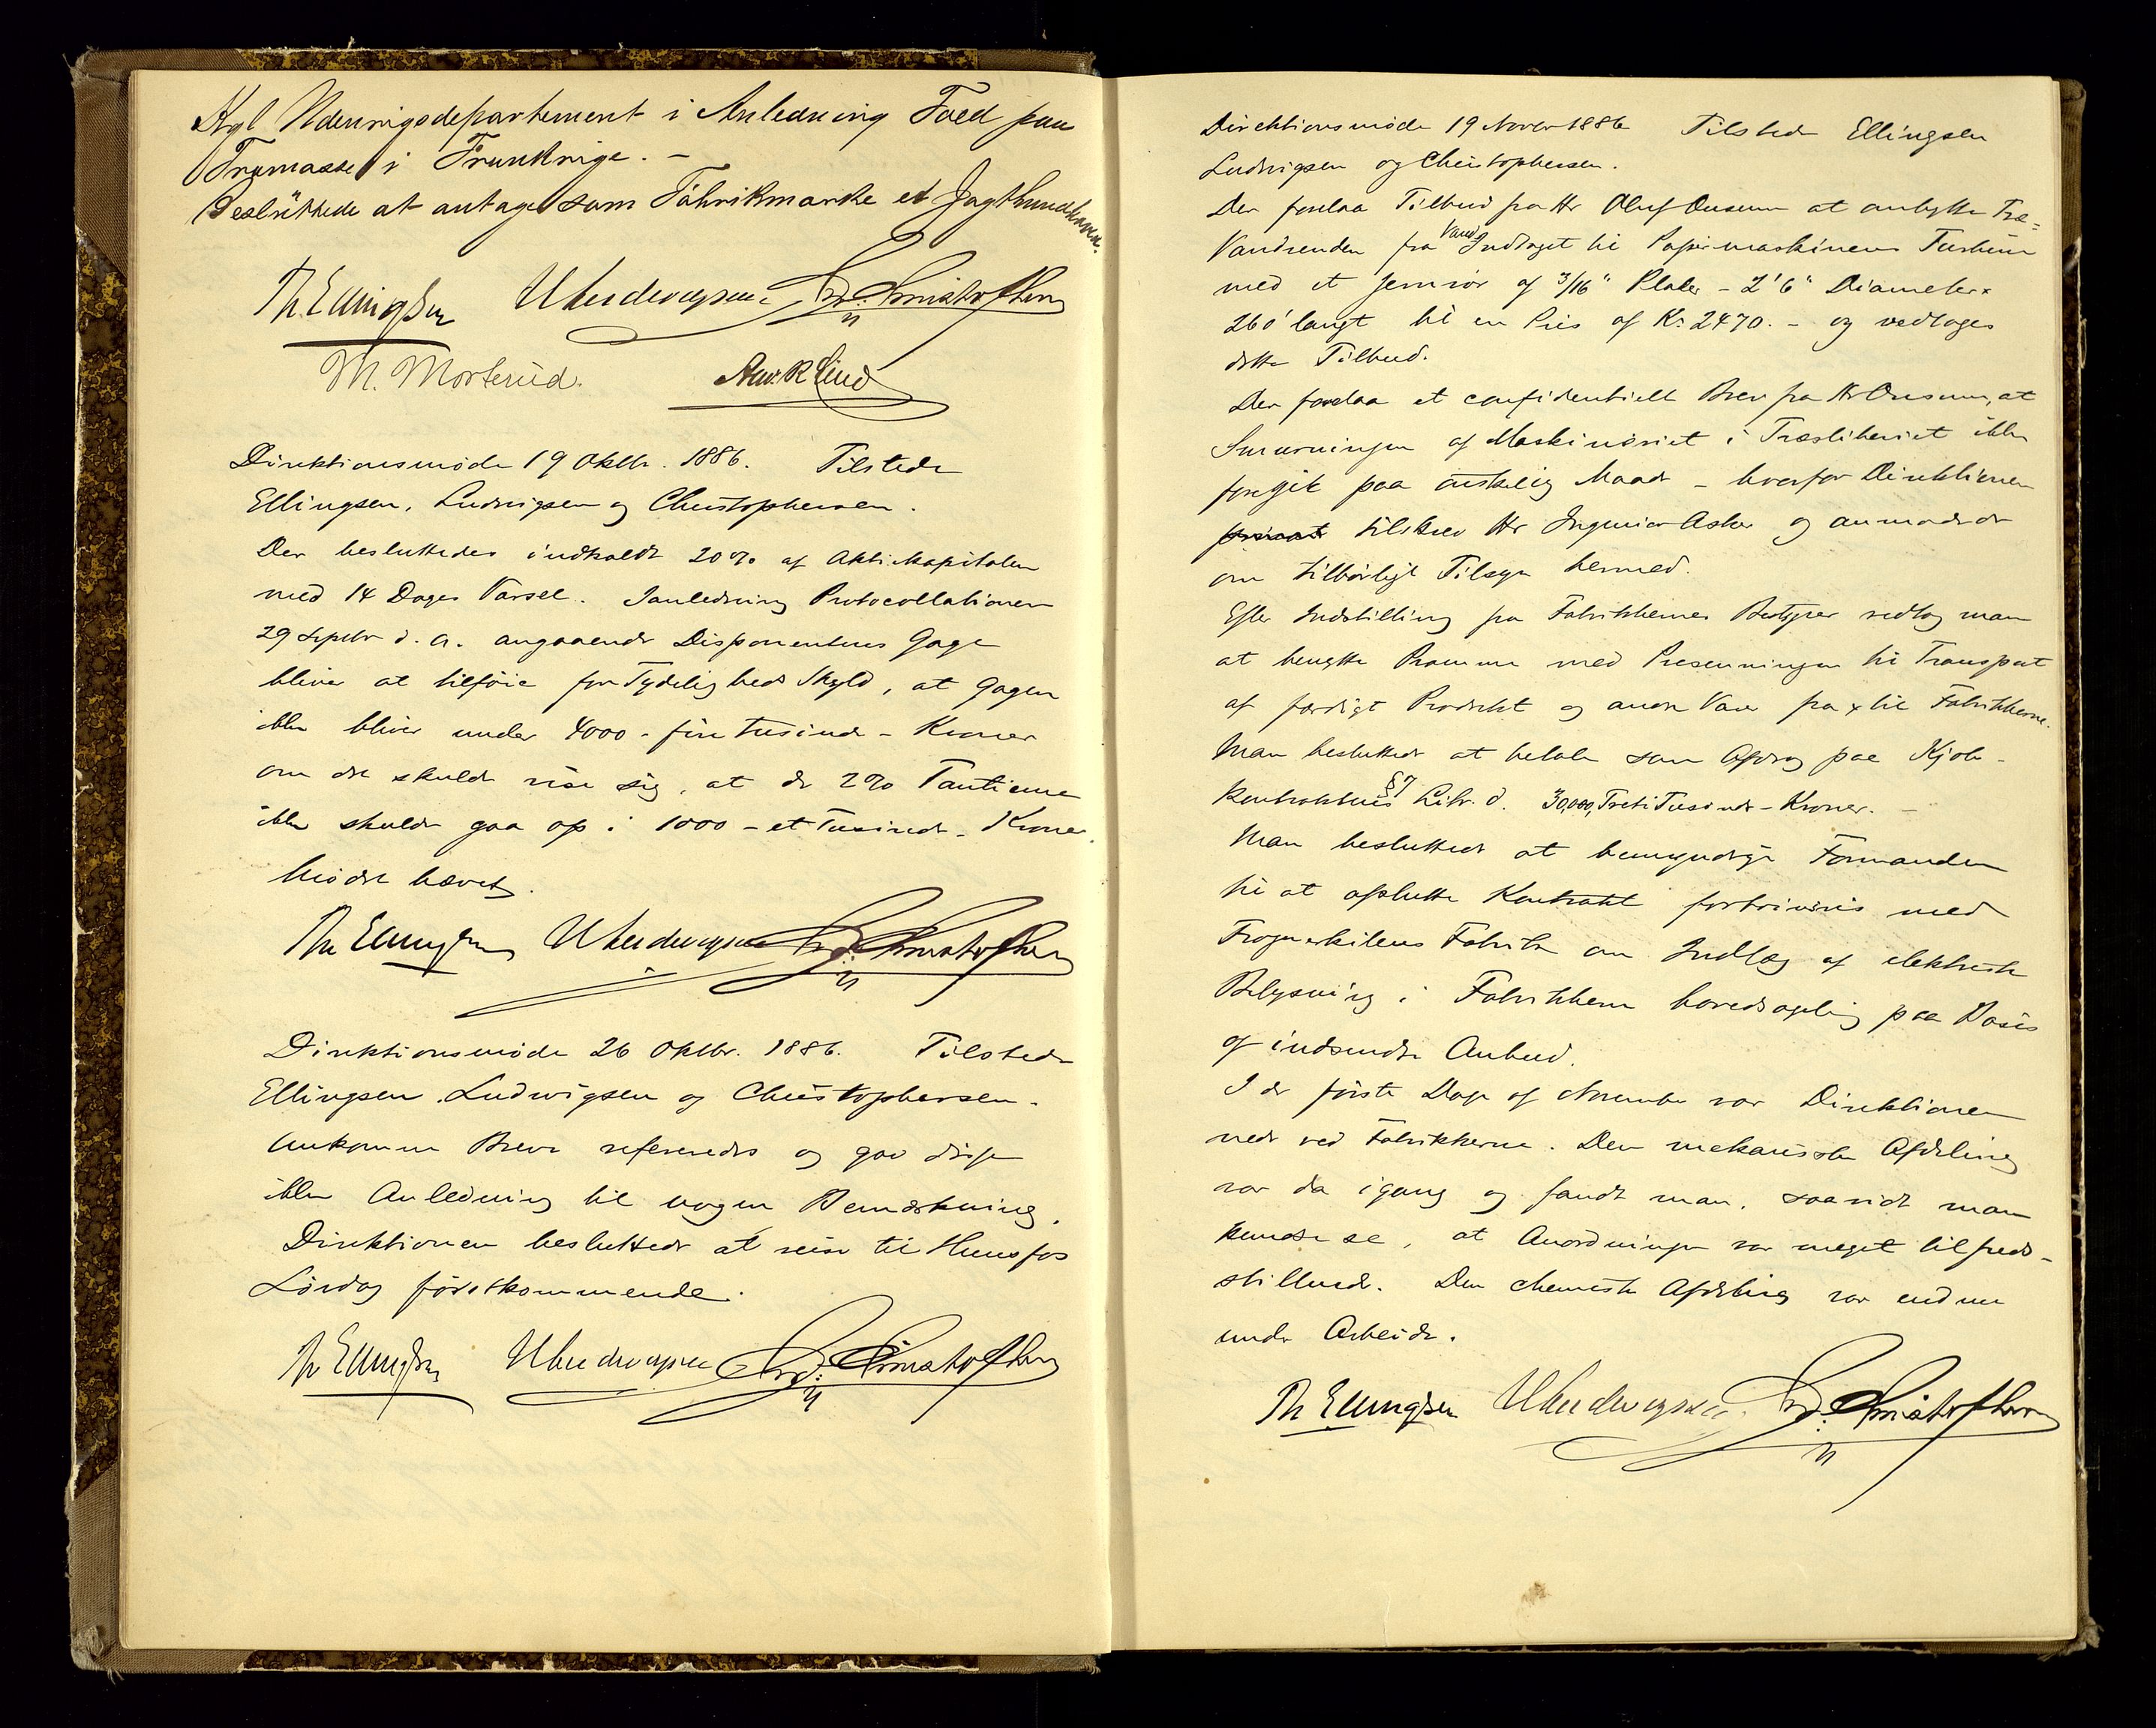 Kgl Udenrigsdepartement i Anledning Told paa
Træmasse i Frankrige. –
Besluttede at antage som Fabrikmærke et Jagthundhoved.
Th. Ellingsen Uludwigsen Fred. Christophersen
M. Morterud. And. R Lind
Direktionsmöde 19 Oktbr. 1886. Tilstede
Ellingsen, Ludvigsen og Christophersen.
Der besluttedes indkaldt 20% af Aktiekapitalen
med 14 Dages Varsel. Ianledning Protocollationen
29 Septbr d. a. angaaende Disponentens Gage
bliver at tilföie for Tydeligheds Skyld, at Gagen
ikke bliver under 4000 – fire tusinde – Kroner
om det skulde vise sig, at de 2% Tantieme
ikke skulde gaa op i 1000 – et Tusinde – Kroner.
Mödet hævet.
Th Ellingsen Uludwigsen Fred. Christophersen
Direktionsmöde 26 Oktbr. 1886. Tilstede
Ellingsen, Ludwigsen og Christophersen.
Ankomne Breve refereredes og gav disse
ikke Anledning til nogen Bemærkning.
Direktionen besluttede at reise til Hunsfos
Lördag förstkommende.
Th Ellingsen Uludwigsen Fred. Christophersen
Direktionsmöde 19 Novbr 1886 Tilstede Ellingsen
Ludvigsen og Christophersen.
Der forelaa Tilbud fra Hr Oluf Onsum at ombytte Træ=
Vandrenden fra Vand Indtaget til Papirmaskinens Turbine
med et Jernrör af 3/16" Plader – 2' 6" Diameter x
260' langt til en Pris af Kr. 2470. – og vedtoges
dette Tilbud.
Der forelaa et confidentielt Brev fra Hr Onsum, at
Smurningen af Maskineriet i Træsliberiet ikke
foregik paa önskelig Maade – hvorfor Direktionen
privat tilskrev Hr Ingeniör Asker og anmodede
om tilbörligt Tilsyn hermed.
Efter Indstilling fra Fabrikkernes Bestyrer vedtog man
at benytte Pramme med Presenninger til Transport
af færdigt Produkt og andre Varer fra & til Fabrikkerne.
Man besluttede at betale som Afdrag paa Kjöbe-
kontraktens §7 Litr. d. 30,000, Treti Tusinde – Kroner. –
Man besluttede at bemyndige Formanden
til at afslutte Kontrakt fortrinsvis med
Frognerkilens Fabrik om Indlæg af elektrisk
Belysning i Fabrikkerne hovedsagelig paa Basis
af indsendte Anbud.
I de förste Dage af November var Direktionen
nede ved Fabrikkerne. Den mekaniske Afdeling
var da igang og fandt man, saavidt man
kunde se, at Anordningen var meget tilfreds-
stillende. Den chemiske Afdeling var endnu
under Arbeide.
Th Ellingsen Uludwigsen Fred. Christophersen